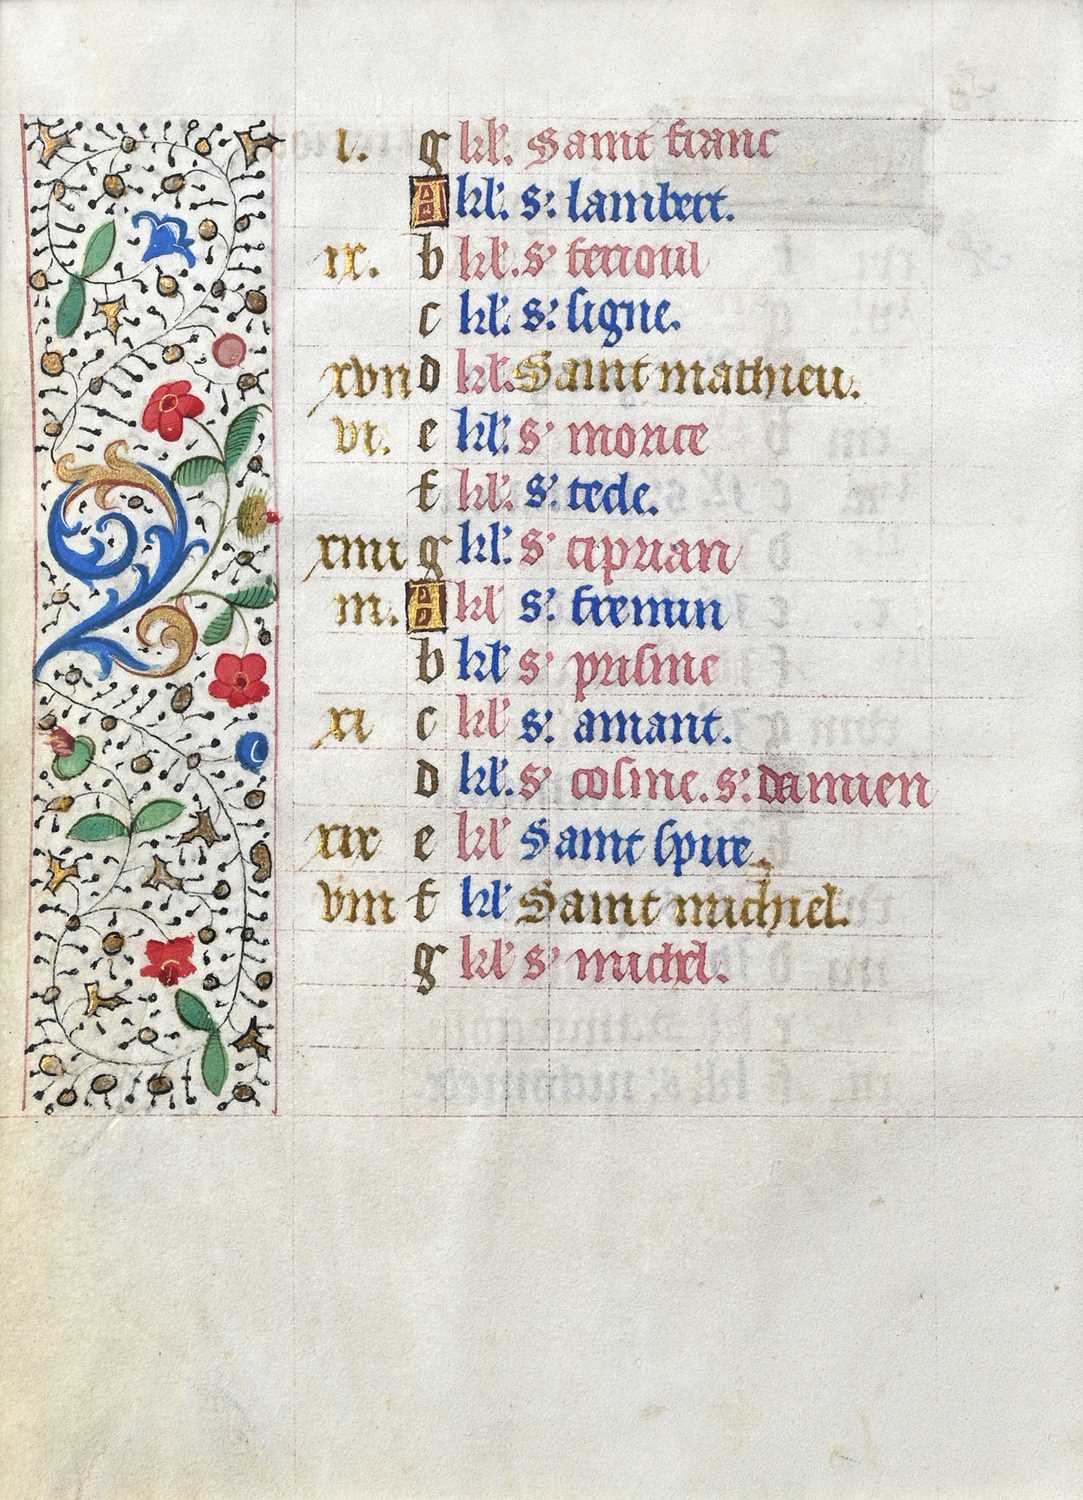 i. g kl'. Saint franc
A kl'. s'. lambert.
ix. b kl'. s' ferioul
c kl'. s'. signe.
xvii d kl'. Saint mathieu.
vi. e kl'. s' morice
f kl'. s'. tede.
xiiii g kl'. s' ciprian
iii. A kl' s'. fremin
b kl' s' prisme
xi c kl' s'. amant.
d kl'. s' cosme. s'. damien
xix e kl' Saint spire.
viii f kl' Saint michiel.
g kl' s' michel.